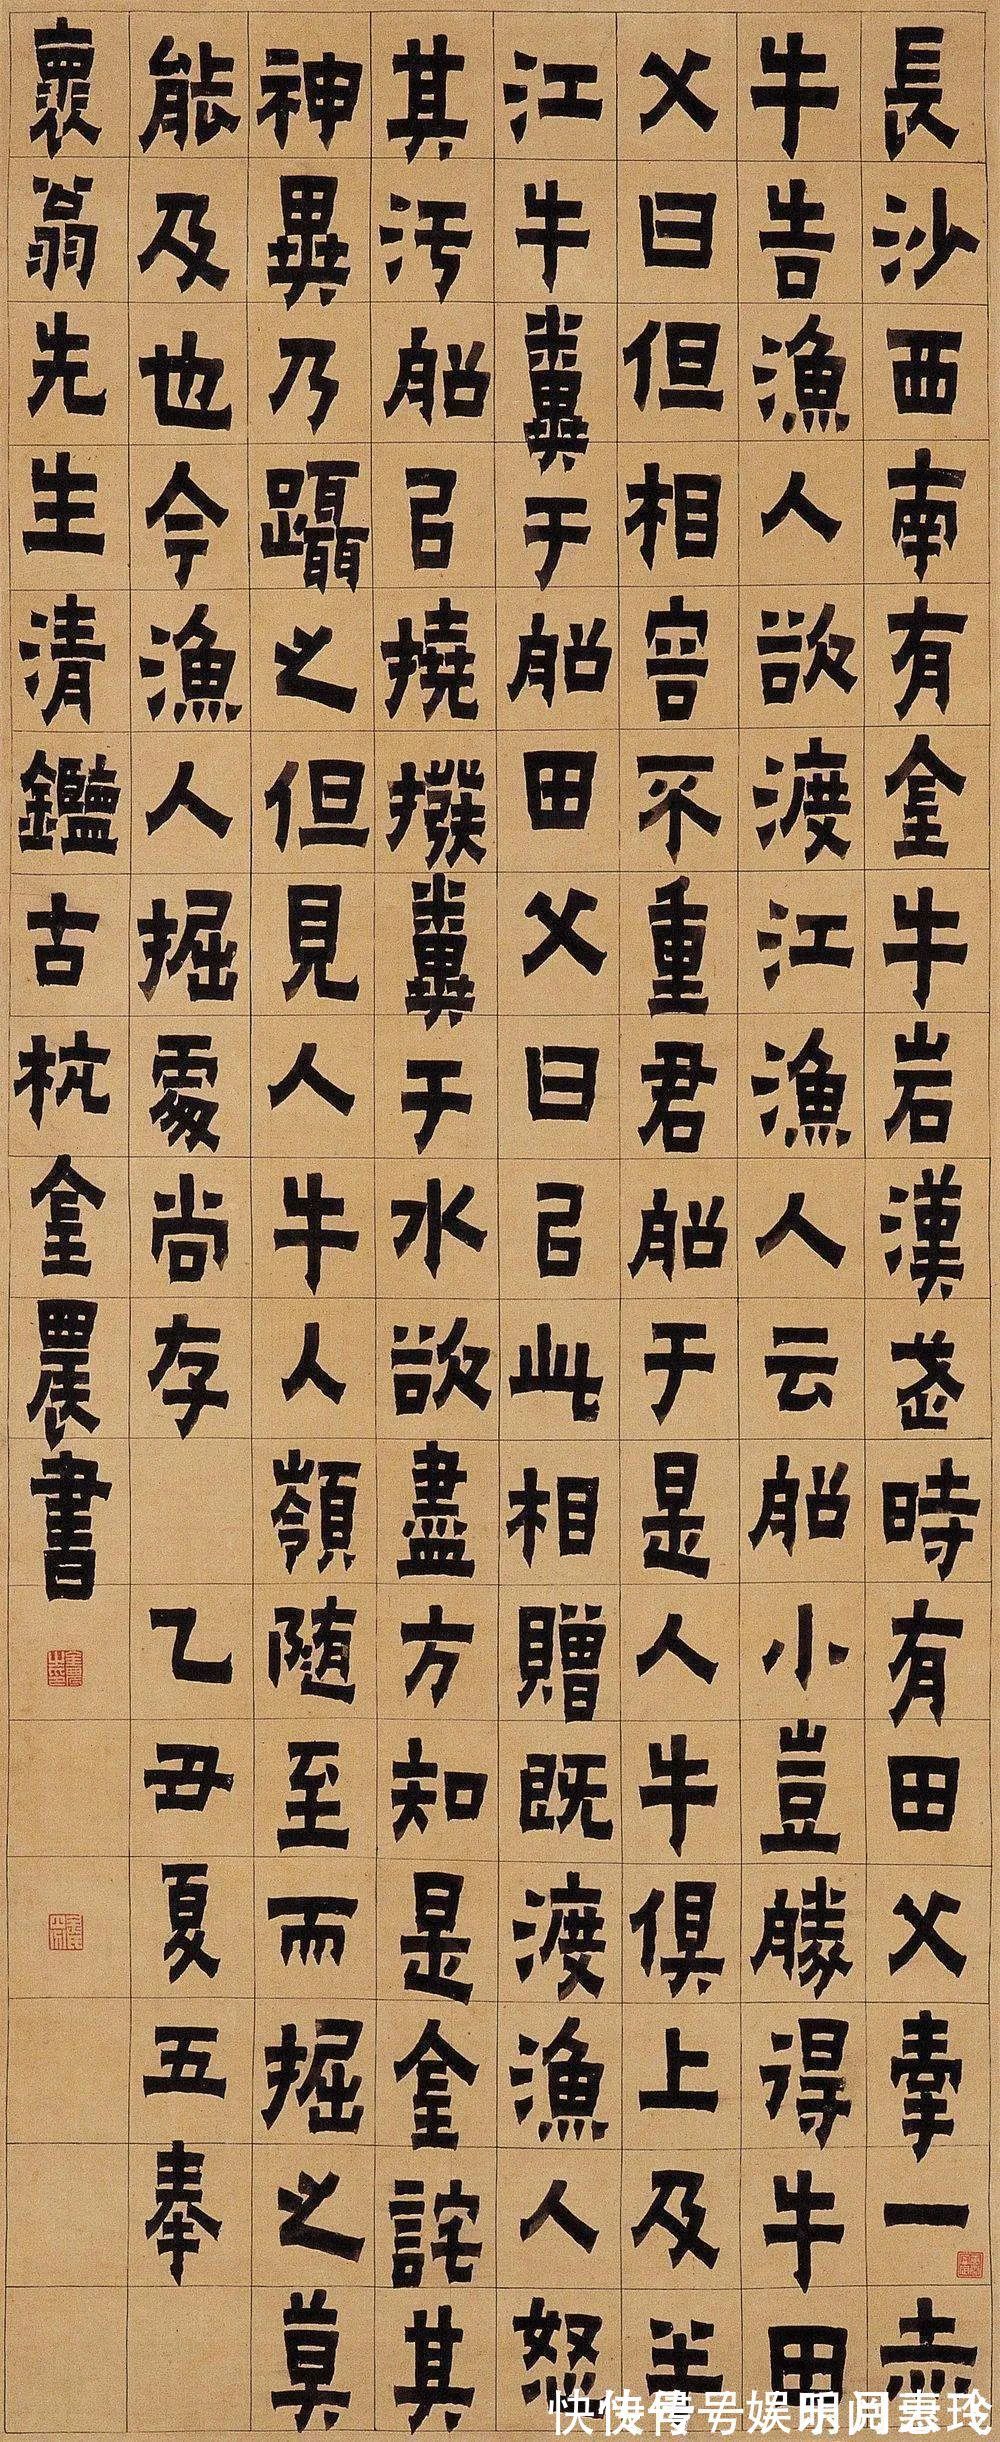 長沙西南有金牛岩漢武時有田父牽一赤
牛告漁人欲渡江漁人云船小豈勝得牛田
父曰但相容不重君船于是人牛俱上及半
江牛糞于船田父曰㠯此相贈既渡漁人怒
其汚船㠯撓撥糞于水欲盡方知是金詫其
神異乃躡之但見人牛入嶺隨至而掘之莫
能及也今漁人掘處尚存 乙丑夏五奉
褱翁先生清鑑古杭金農書